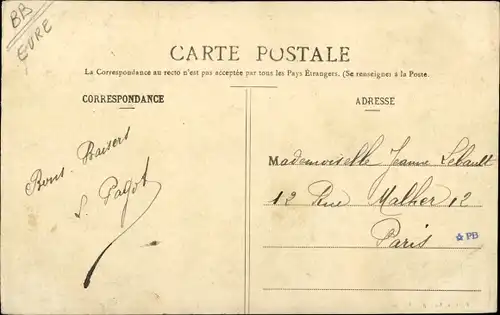 BB
EURE
CARTE POSTALE
La Correspondance au recto n'est pas acceptée par tous les Pays Étrangers. (Se renseigner à la Poste.
CORRESPONDANCE
ADRESSE
Bons Baisers
S. Pagot
Mademoiselle Jeanne Lebault
12 Rue Malher 12
Paris
PB